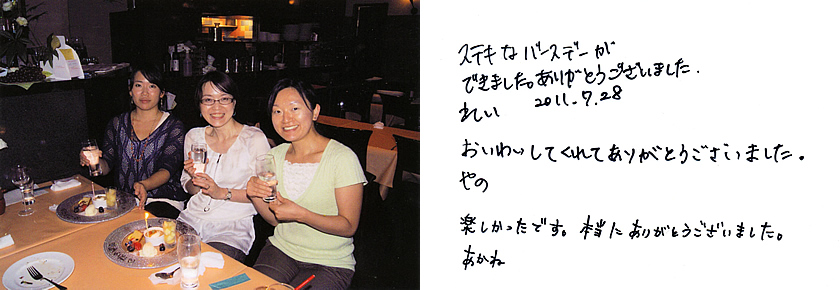 ステキなバースデーが
できました。ありがとうございました.
れい 2011.7.28
おいわいしてくれてありがとうございました.
やの
楽しかったです。本当にありがとうございました。
あかね